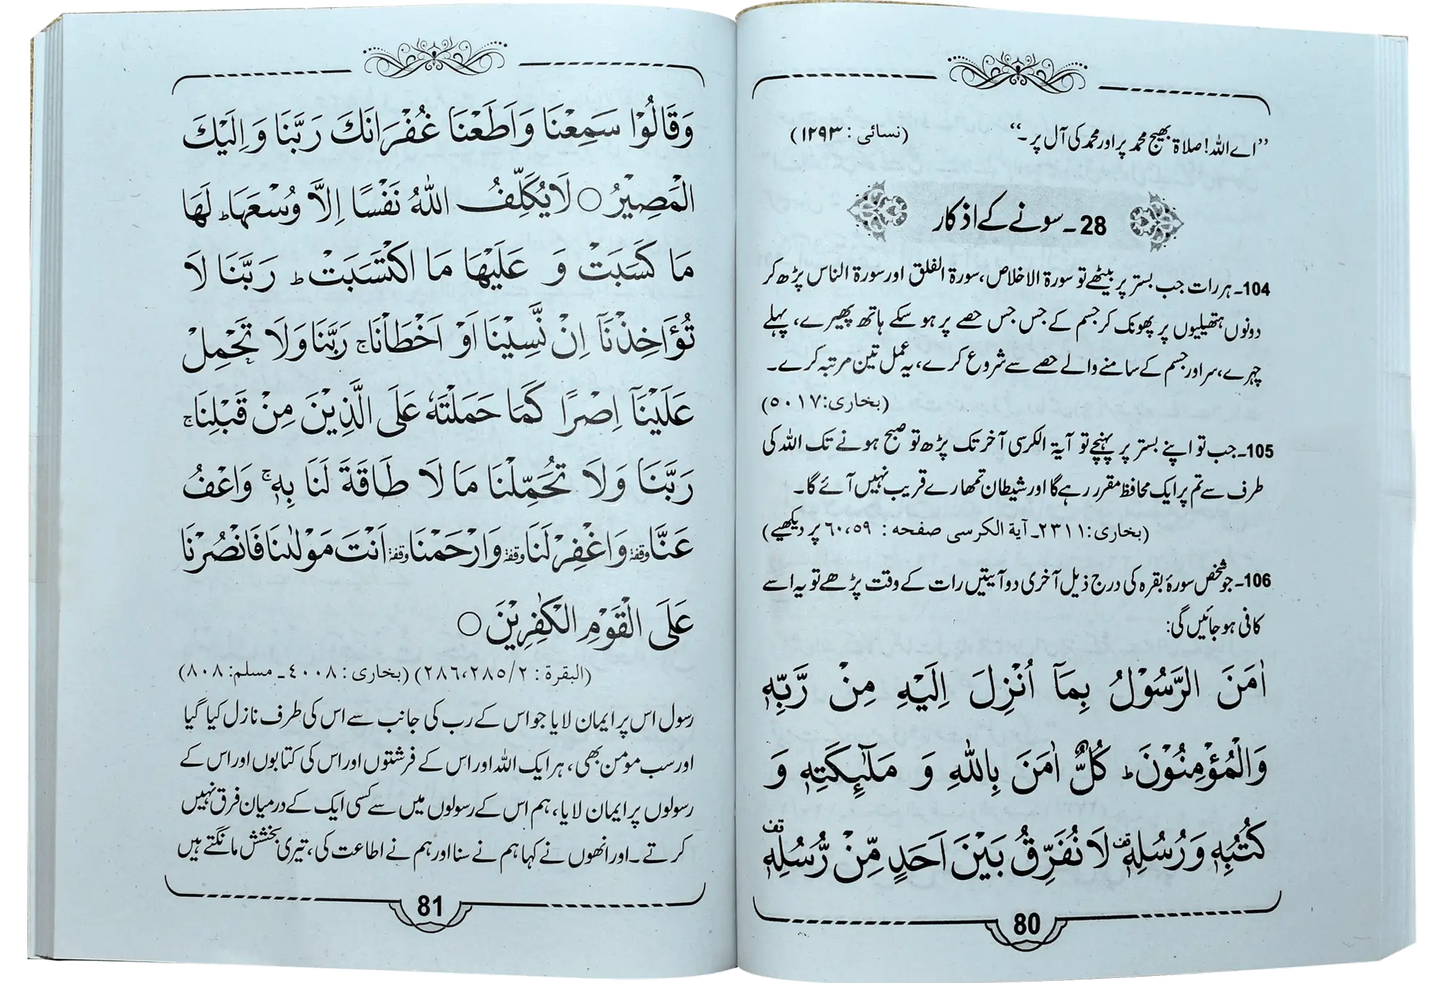 ”اے اللہ! صلاۃ بھیج محمد پر اور محمد کی آل پر۔“ (نسائی : ۱۲۹۳)
28۔ سونے کے اذکار
104۔ ہر رات جب بستر پر بیٹھے تو سورۃ الاخلاص، سورۃ الفلق اور سورۃ الناس پڑھ کر
دونوں ہتھیلیوں پر پھونک کر جسم کے جس جس حصے پر ہو سکے ہاتھ پھیرے، پہلے
چہرے، سر اور جسم کے سامنے والے حصے سے شروع کرے، یہ عمل تین مرتبہ کرے۔
(بخاری: ۵۰۱۷)
105۔ جب تو اپنے بستر پر پہنچے تو آیۃ الکرسی آخر تک پڑھ تو صبح ہونے تک اللہ کی
طرف سے تم پر ایک محافظ مقرر رہے گا اور شیطان تمھارے قریب نہیں آئے گا۔
(بخاری: ۲۳۱۱۔ آیة الکرسی صفحه : ۶۰،۵۹ پر دیکھیے)
106۔ جو شخص سورۂ بقرہ کی درج ذیل آخری دو آیتیں رات کے وقت پڑھے تو یہ اسے
کافی ہو جائیں گی:
اٰمَنَ الرَّسُوْلُ بِمَآ اُنْزِلَ اِلَيْهِ مِنْ رَّبِّهٖ
وَالْمُؤْمِنُوْنَ ؕ كُلٌّ اٰمَنَ بِاللّٰهِ وَ مَلٰٓئِكَتِهٖ وَ
كُتُبِهٖ وَرُسُلِهٖ ۫ لَا نُفَرِّقُ بَيْنَ اَحَدٍ مِّنْ رُّسُلِهٖ ۫
80
وَقَالُوْا سَمِعْنَا وَاَطَعْنَا غُفْرَانَكَ رَبَّنَا وَاِلَيْكَ
الْمَصِيْرُ ○ لَا يُكَلِّفُ اللّٰهُ نَفْسًا اِلَّا وُسْعَهَا ؕ لَهَا
مَا كَسَبَتْ وَ عَلَيْهَا مَا اكْتَسَبَتْ ؕ رَبَّنَا لَا
تُؤَاخِذْنَآ اِنْ نَّسِيْنَا اَوْ اَخْطَاْنَا ۚ رَبَّنَا وَلَا تَحْمِلْ
عَلَيْنَآ اِصْرًا كَمَا حَمَلْتَهٗ عَلَى الَّذِيْنَ مِنْ قَبْلِنَا ۚ
رَبَّنَا وَلَا تُحَمِّلْنَا مَا لَا طَاقَةَ لَنَا بِهٖ ۚ وَاعْفُ
عَنَّا وقفة وَاغْفِرْ لَنَا وقفة وَارْحَمْنَا وقفة اَنْتَ مَوْلٰىنَا فَانْصُرْنَا
عَلَى الْقَوْمِ الْكٰفِرِيْنَ ○
(البقرة : ۲۸۶،۲۸۵/۲) (بخاری : ۴۰۰۸۔ مسلم: ۸۰۸)
رسول اس پر ایمان لایا جو اس کے رب کی جانب سے اس کی طرف نازل کیا گیا
اور سب مومن بھی، ہر ایک اللہ اور اس کے فرشتوں اور اس کی کتابوں اور اس کے
رسولوں پر ایمان لایا، ہم اس کے رسولوں میں سے کسی ایک کے درمیان فرق نہیں
کرتے۔ اور انھوں نے کہا ہم نے سنا اور ہم نے اطاعت کی، تیری بخشش مانگتے ہیں
81